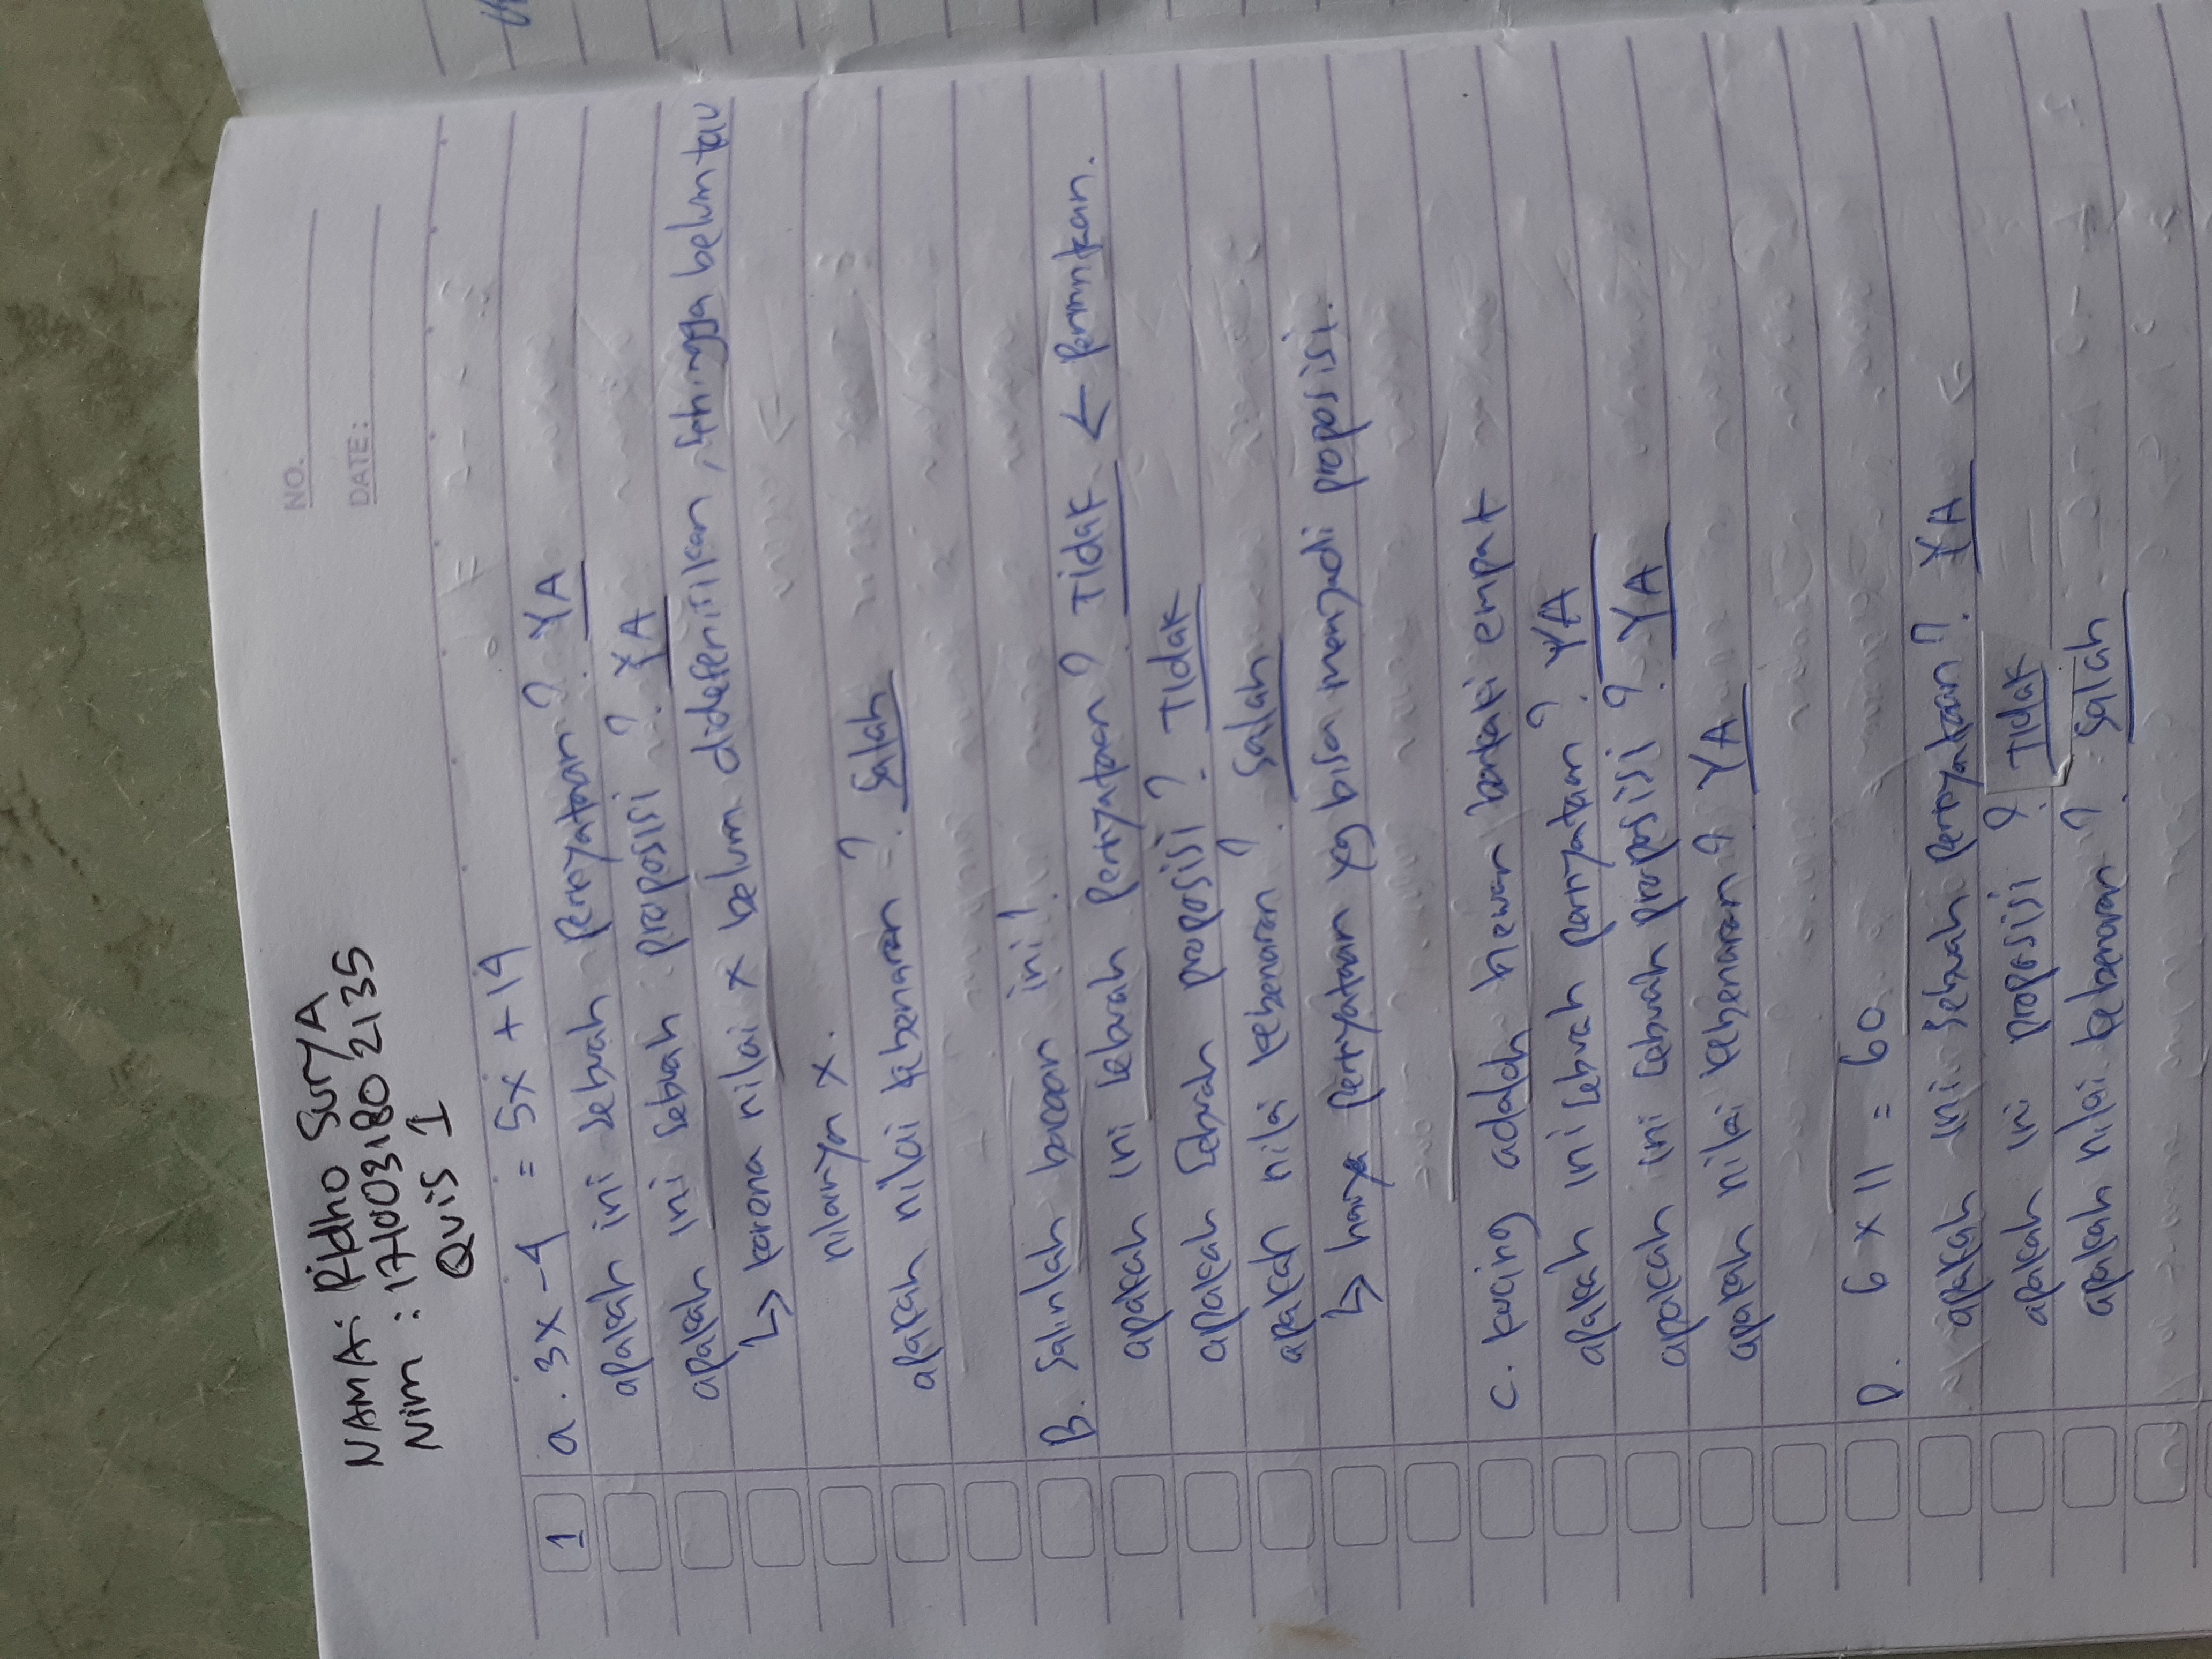 NO.
DATE:
NAMA: Ridho SuryA
Nim : 171003180 2135
Quis 1
1 a. 3x - 4 = 5x + 14
apakah ini sebuah pernyataan? YA
apakah ini sebuah proposisi? YA
↳ karena nilai x belum didefenisikan, sehingga belum tau
nilainya x.
apakah nilai kebenaran? Salah
B. Salinlah bacaan ini!
apakah ini sebuah pernyataan? Tidak ←
apakah sebuah proposisi? Tidak
apakah nilai kebenaran? Salah
↳ hanya pernyataan yg bisa menjadi proposisi.
C. kucing adalah hewan berkaki empat
apakah ini sebuah pernyataan? YA
apakah ini sebuah proposisi? YA
apakah nilai kebenaran? YA
D. 6 x 11 = 60
apakah ini sebuah pernyataan? YA
apakah ini proposisi? Tidak
apakah nilai kebenaran? Salah